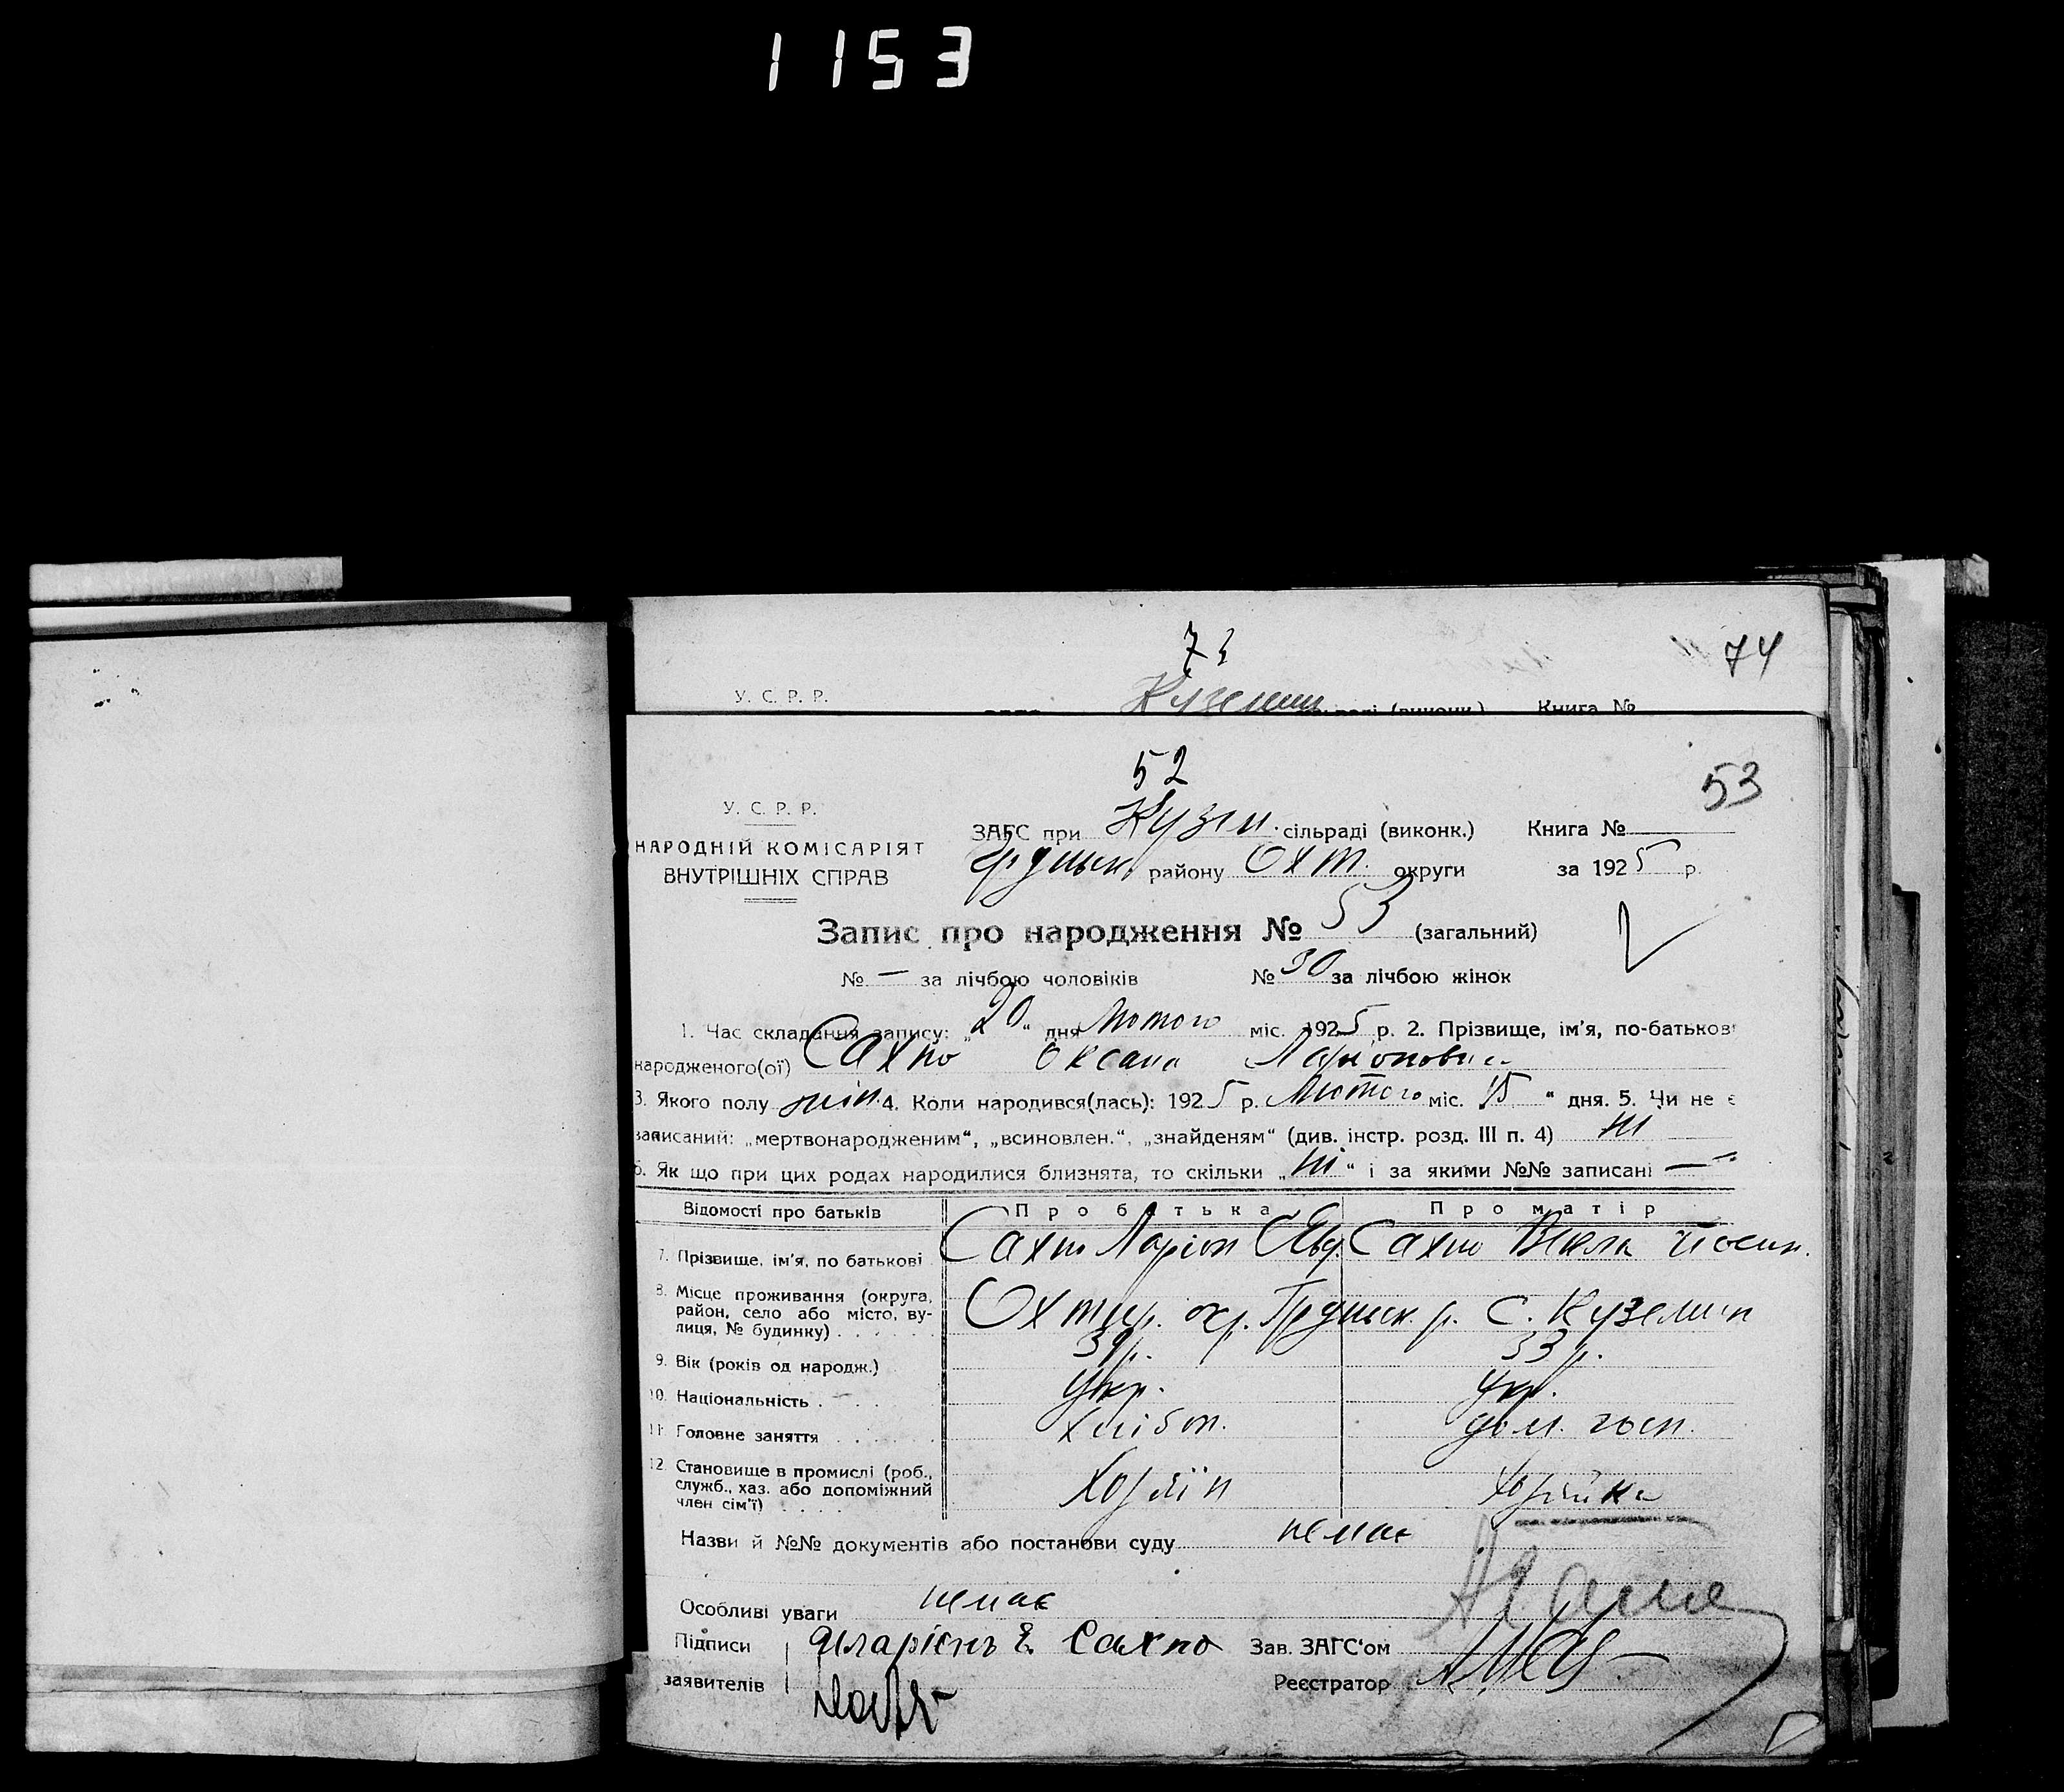 1153
73
74
У. С. Р. Р.
Кузелин Книга №
52
53
У. С. Р. Р.
НАРОДНІЙ КОМІСАРІЯТ
ВНУТРІШНІХ СПРАВ
ЗАГС при Кузел. сільраді (виконк.) Книга №
Грунськ. району Охт. округи за 1925 р.
Запис про народження № 53 (загальний)
№ — за лічбою чоловіків № 30 за лічбою жінок
1. Час складання запису: „20“ дня Лютого міс. 1925 р. 2. Прізвище, ім'я, по-батькові
народженого(ої) Сахно Оксана Ларіоновна
3. Якого полу жін. 4. Коли народився(лась): 1925 р. Лютого міс. 15 “ дня. 5. Чи не є
записаний: „мертвонародженим“, „всиновлен.“, „знайденям“ (див. інстр. розд. III п. 4) ні
6. Як що при цих родах народилися близнята, то скільки „ні“ і за якими №№ записані —
Відомості про батьків Про батька Про матір
7. Прізвище, ім'я, по батькові Сахно Ларіон Евд. Сахно Йосип.
8. Місце проживання (округа, район, село або місто, ву-
лиця, № будинку) Охтир. окр. Грунськ. р. С. Куземин
9. Вік (років од народж.) р. 33 р.
10. Національність Укр. Укр.
11. Головне заняття хлібор. дом. госп.
12. Становище в промислі (роб.,
служб., хаз. або допоміжний
член сім'ї) Хозяїн Хозяйка
Назви й №№ документів або постанови суду немає
Особливі уваги немає
Підписи Іларіенъ Е. Сахно Зав. ЗАГС'ом
заявителів Реєстратор